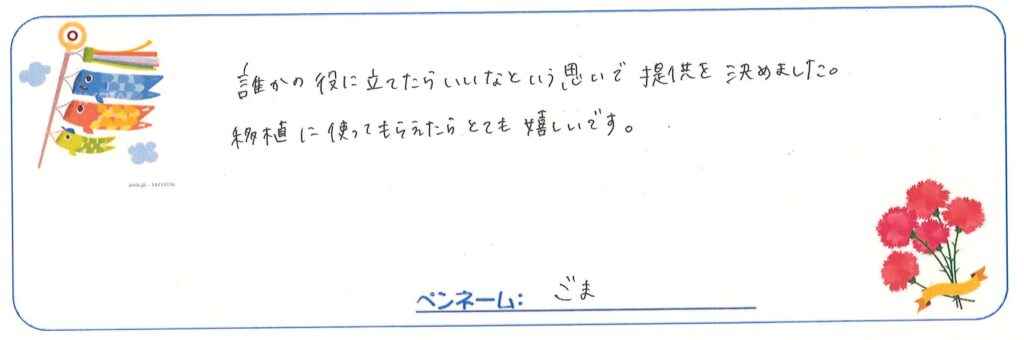 誰かの役に立てたらいいなという思いで提供を決めました。
移植に使ってもらえたらとても嬉しいです。
ペンネーム: ごま